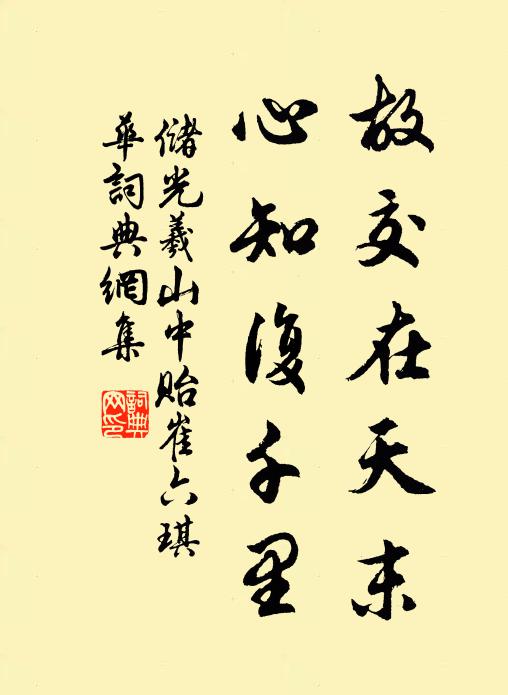 故交在天末
心知復千里
儲光羲山中貽崔六琪
華詞典網集
詞典
网印